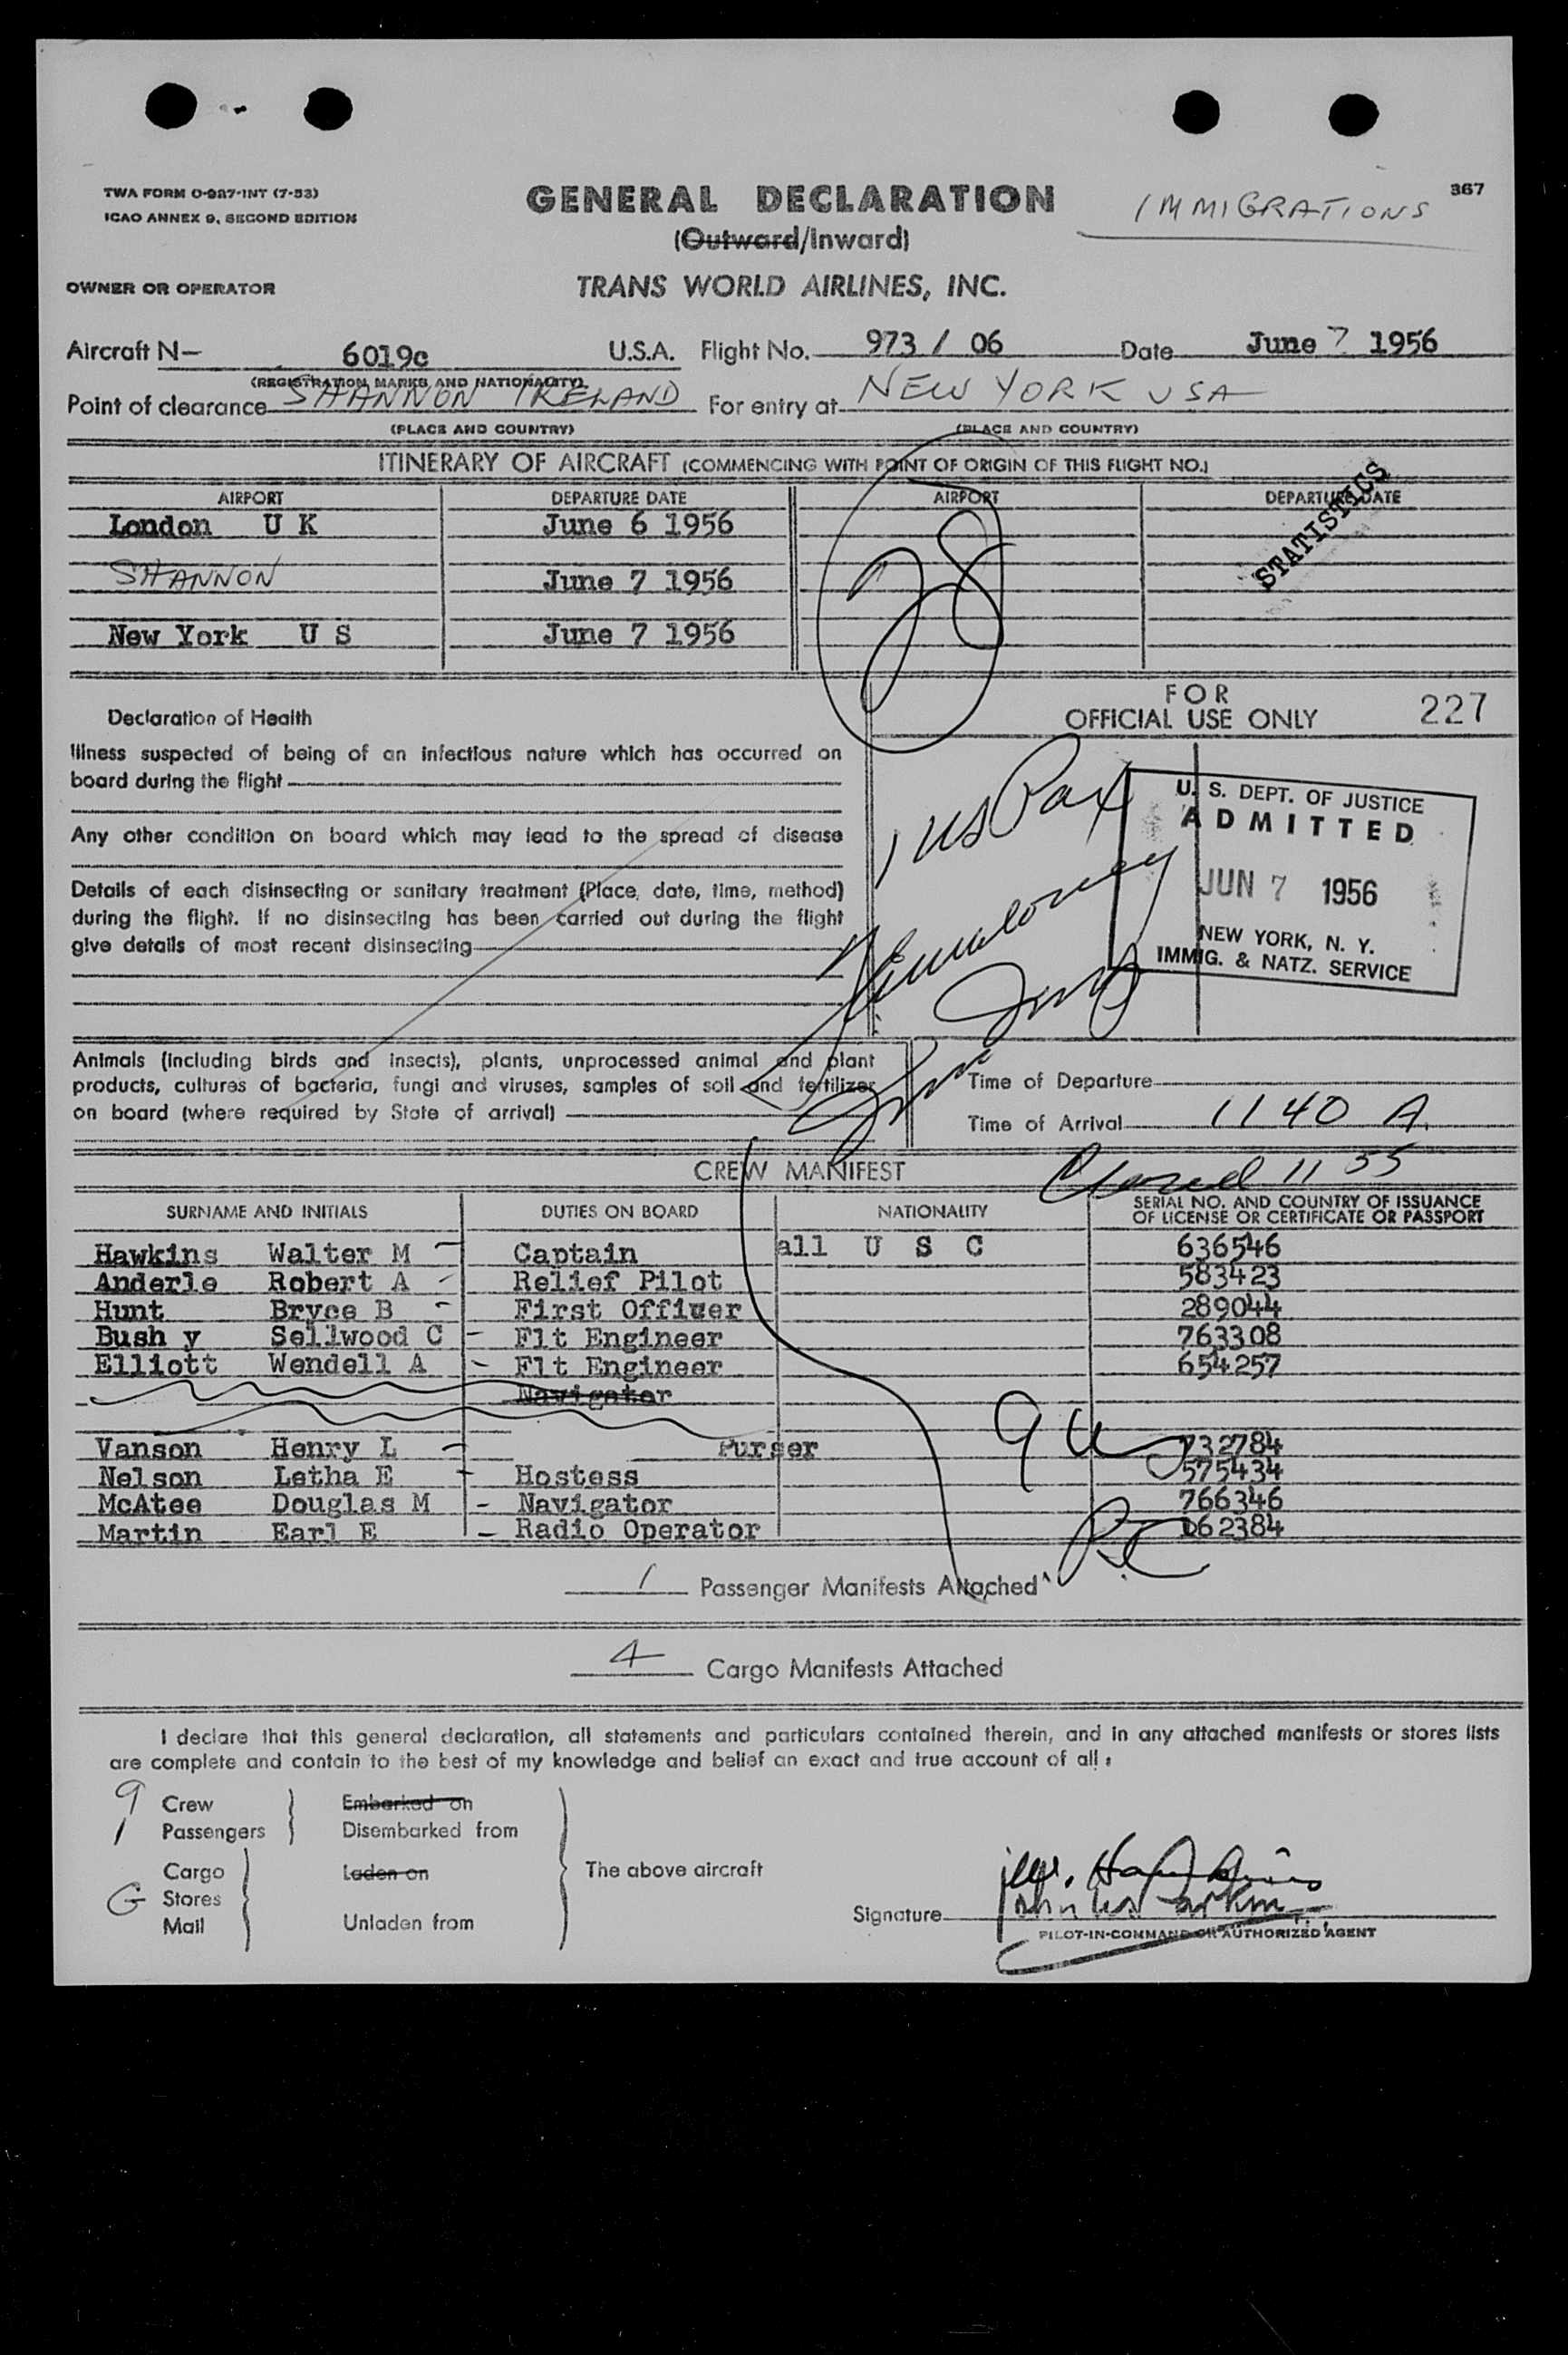 TWA FORM O-987-INT (7-53)
ICAO ANNEX 9, SECOND EDITION
GENERAL DECLARATION
IMMIGRATIONS
367
(Outward/Inward)
OWNER OR OPERATOR
TRANS WORLD AIRLINES, INC.
Aircraft N— 6019c U.S.A. Flight No. 973 / 06 Date June 7 1956
(REGISTRATION MARKS AND NATIONALITY)
Point of clearance SHANNON IRELAND For entry at NEW YORK USA
(PLACE AND COUNTRY) (PLACE AND COUNTRY)
ITINERARY OF AIRCRAFT (COMMENCING WITH POINT OF ORIGIN OF THIS FLIGHT NO.)
AIRPORT DEPARTURE DATE AIRPORT DEPARTURE DATE
London U K June 6 1956
STATISTICS
SHANNON June 7 1956
New York U S June 7 1956
FOR
OFFICIAL USE ONLY 227
Declaration of Health
Illness suspected of being of an infectious nature which has occurred on
board during the flight
Any other condition on board which may lead to the spread of disease
Details of each disinsecting or sanitary treatment (Place, date, time, method)
during the flight. If no disinsecting has been carried out during the flight
give details of most recent disinsecting
1 US Pax
U. S. DEPT. OF JUSTICE
ADMITTED
JUN 7 1956
NEW YORK, N. Y.
IMMIG. & NATZ. SERVICE
Animals (including birds and insects), plants, unprocessed animal and plant
products, cultures of bacteria, fungi and viruses, samples of soil and fertilizer
on board (where required by State of arrival)
Time of Departure
Time of Arrival 11 40 A.
CREW MANIFEST
Cleared 11 55
SURNAME AND INITIALS DUTIES ON BOARD NATIONALITY SERIAL NO. AND COUNTRY OF ISSUANCE
OF LICENSE OR CERTIFICATE OR PASSPORT
Hawkins Walter M Captain all U S C 636546
Anderle Robert A Relief Pilot 583423
Hunt Bryce B First Officer 289044
Bush y Sellwood C Flt Engineer 763308
Elliott Wendell A Flt Engineer 654257
Navigator
Vanson Henry L Purser 732784
Nelson Letha E Hostess 575434
McAtee Douglas M Navigator 766346
Martin Earl E Radio Operator 162384
1 Passenger Manifests Attached
4 Cargo Manifests Attached
I declare that this general declaration, all statements and particulars contained therein, and in any attached manifests or stores lists
are complete and contain to the best of my knowledge and belief an exact and true account of all:
9 Crew Embarked on
1 Passengers Disembarked from
Cargo Laden on The above aircraft
G Stores
Mail Unladen from
Signature
PILOT-IN-COMMAND OR AUTHORIZED AGENT